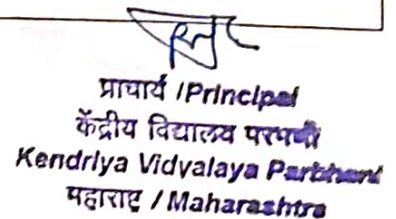 प्राचार्य /Principal
केंद्रीय विद्यालय परभणी
Kendriya Vidyalaya Parbhani
महाराष्ट्र / Maharashtra